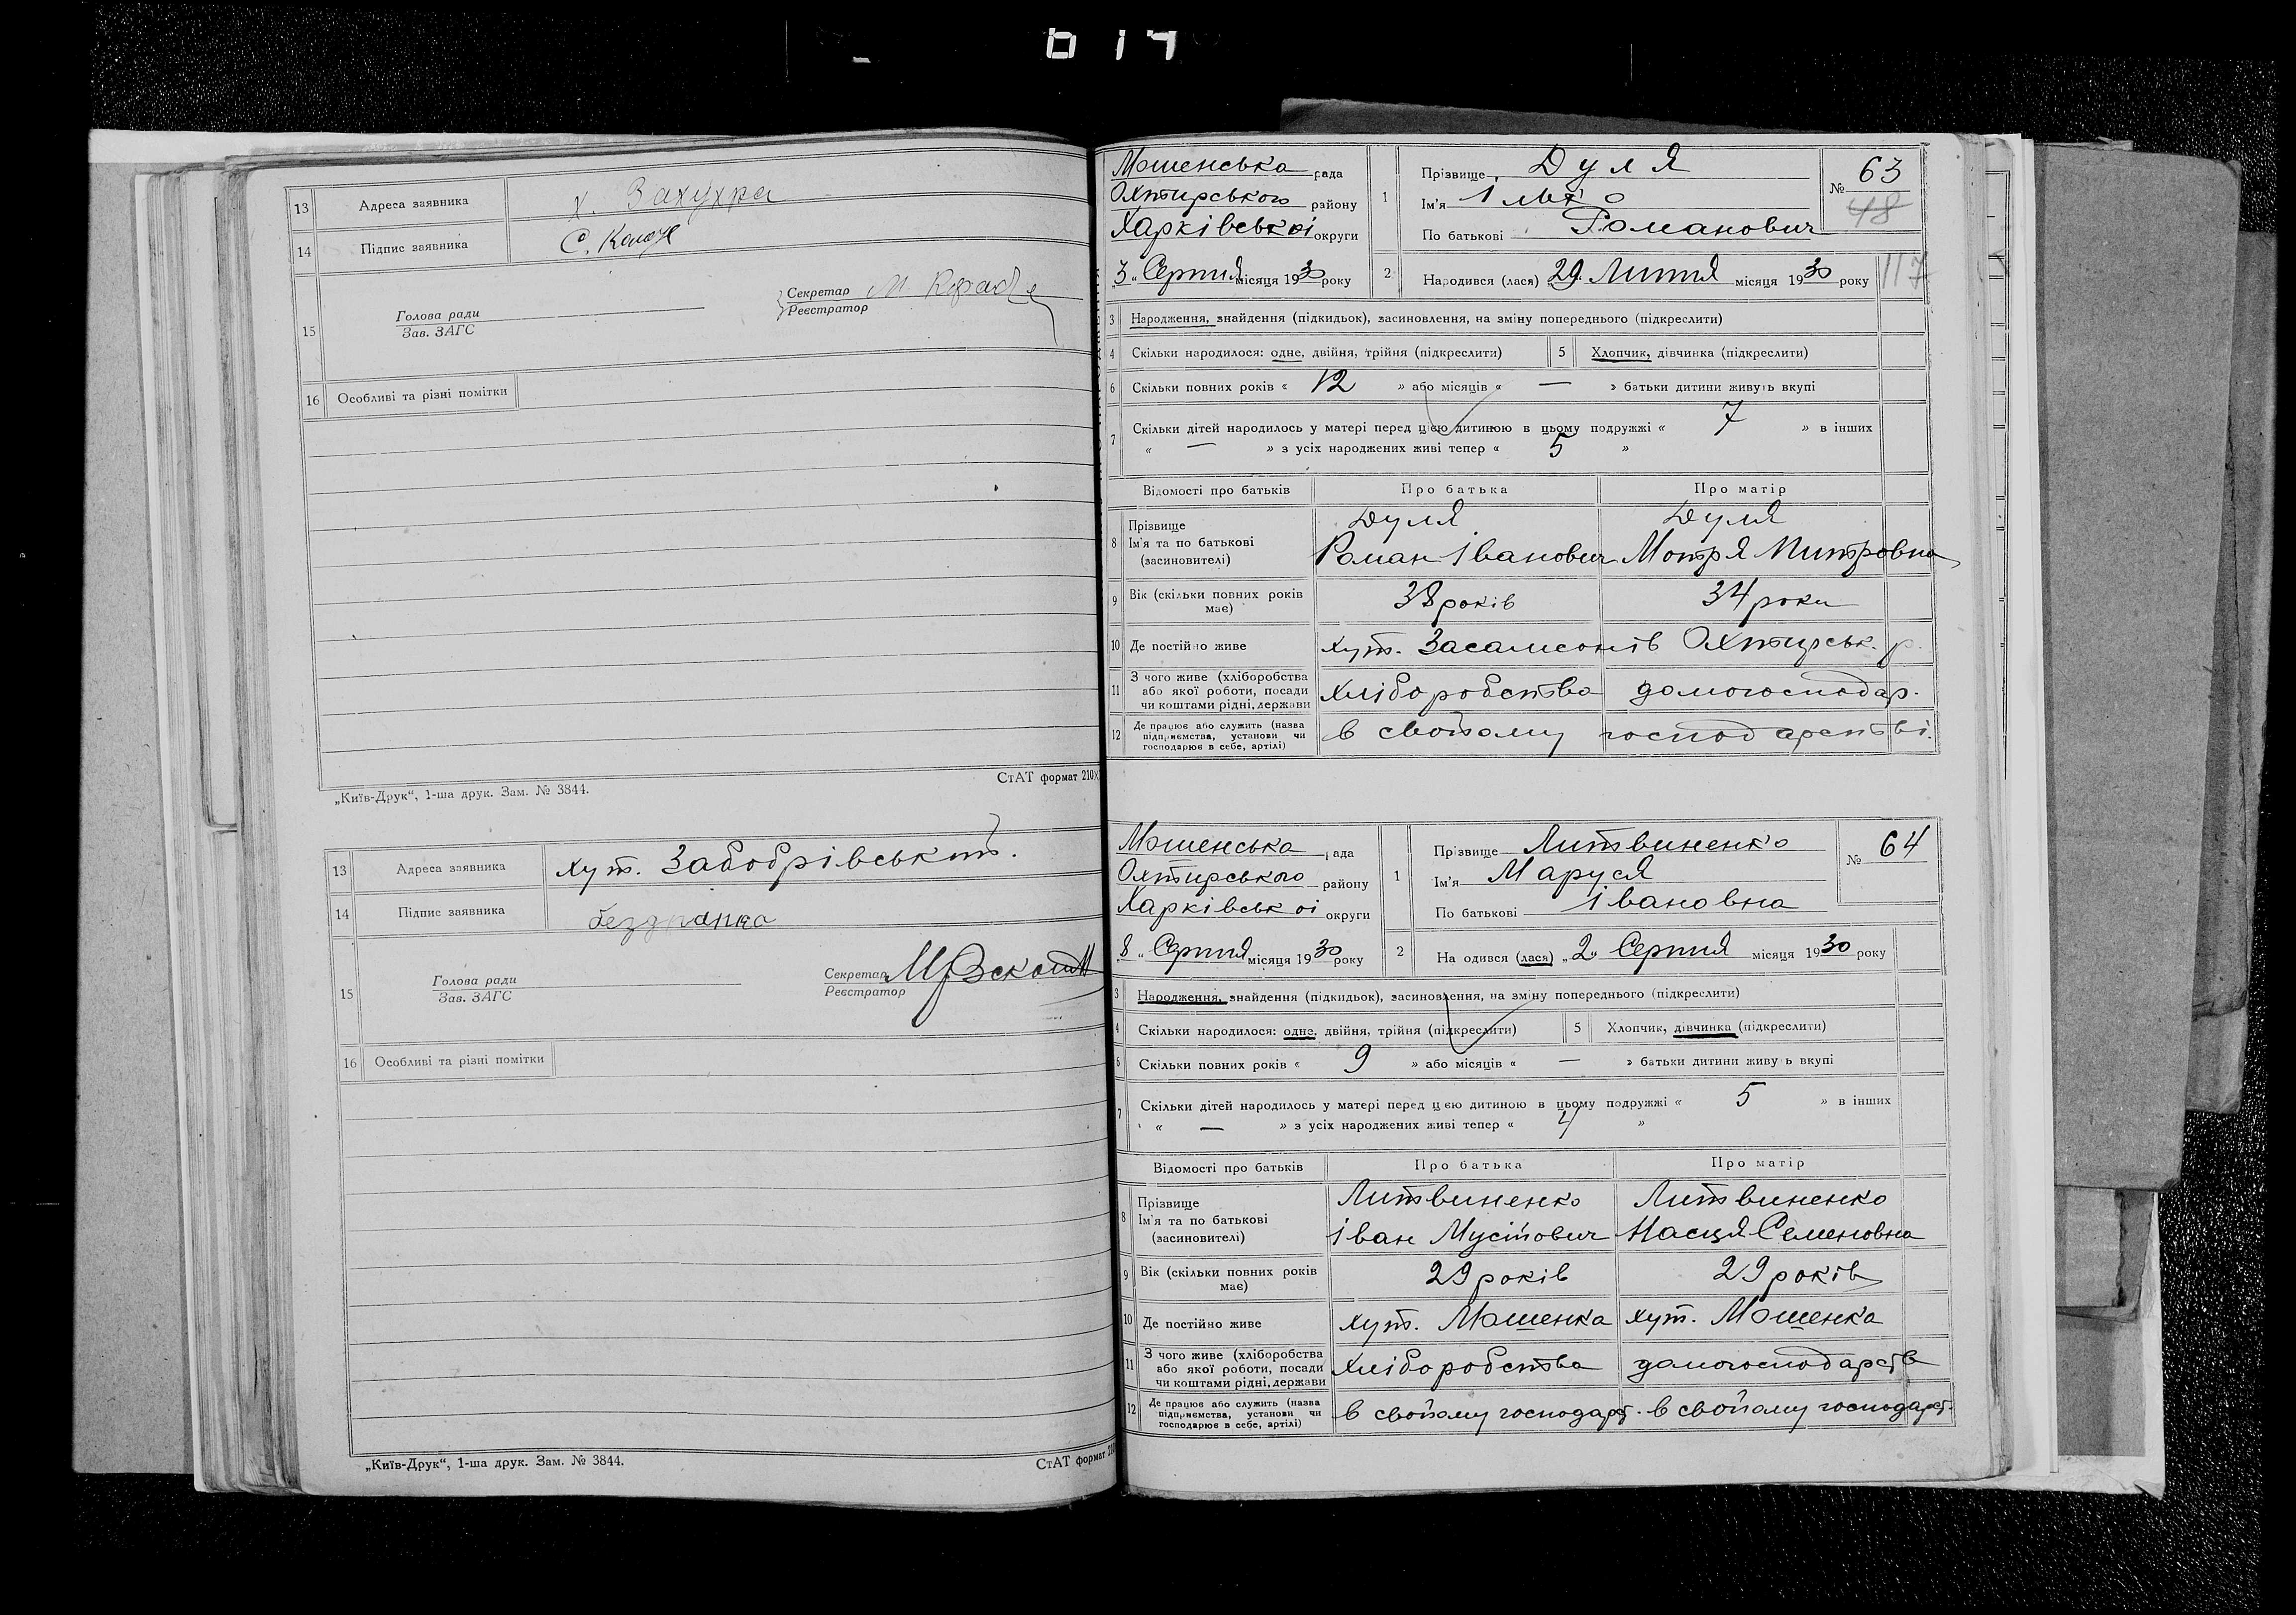 13 Адреса заявника х. Захухра
14 Підпис заявника С.
15 Голова ради Зав. ЗАГС Секретар Реєстратор М
16 Особливі та різні помітки
СтАТ формат 210
„Київ-Друк“, 1-ша друк. Зам. № 3844.
13 Адреса заявника хут. Забобрівський.
14 Підпис заявника
15 Голова ради Зав. ЗАГС Секретар Реєстратор
16 Особливі та різні помітки
„Київ-Друк“, 1-ша друк. Зам. № 3844.
СтАТ формат 210
Мошенська рада
Охтирського району
Харківської округи
3 „ Серпня місяця 1930 року
1 Прізвище Дуля
Ім'я Ілько
По батькові Романович
№ 63
48
2 Народився (лася) „29„ Липня місяця 1930 року
117
3 Народження, знайдення (підкидьок), засиновлення, на зміну попереднього (підкреслити)
4 Скільки народилося: одне, двійня, трійня (підкреслити) 5 Хлопчик, дівчинка (підкреслити)
6 Скільки повних років « 12 » або місяців « — » батьки дитини живуть вкупі
7 Скільки дітей народилось у матері перед цією дитиною в цьому подружжі « 7 » в інших
« — » з усіх народжених живі тепер « 5 »
Відомості про батьків Про батька Про матір
8 Прізвище Дуля Дуля
Ім'я та по батькові Роман Іванович Мотря Митровна
(засиновителі)
9 Вік (скільки повних років має) 38 років 34 роки
10 Де постійно живе хут. Засамсонів Охтирськ. р.
11 З чого живе (хліборобства
або якої роботи, посади хліборобства домогосподар.
чи коштами рідні, держави
12 Де працює або служить (назва
підприємства, установи чи в свойому господарстві.
господарює в себе, артілі)
Мошенська рада
Охтирського району
Харківської округи
„8„ Серпня місяця 1930 року
1 Прізвище Литвиненко
Ім'я Маруся
По батькові Івановна
№ 64
2 На одився (лася) „2„ Серпня місяця 1930 року
3 Народження, знайдення (підкидьок), засиновлення, на зміну попереднього (підкреслити)
4 Скільки народилося: одне, двійня, трійня (підкреслити) 5 Хлопчик, дівчинка (підкреслити)
6 Скільки повних років « 9 » або місяців « — » батьки дитини живуть вкупі
7 Скільки дітей народилось у матері перед цією дитиною в цьому подружжі « 5 » в інших
« — » з усіх народжених живі тепер « 4 »
Відомості про батьків Про батька Про матір
8 Прізвище Литвиненко Литвиненко
Ім'я та по батькові Іван Мусійович Насця Семеновна
(засиновителі)
9 Вік (скільки повних років має) 29 років 29 років
10 Де постійно живе хут. Мошенка хут. Мошенка
11 З чого живе (хліборобства
або якої роботи, посади хліборобства домогосподарств
чи коштами рідні, держави
12 Де працює або служить (назва
підприємства, установи чи в свойому господарст. в свойому господарст.
господарює в себе, артілі)